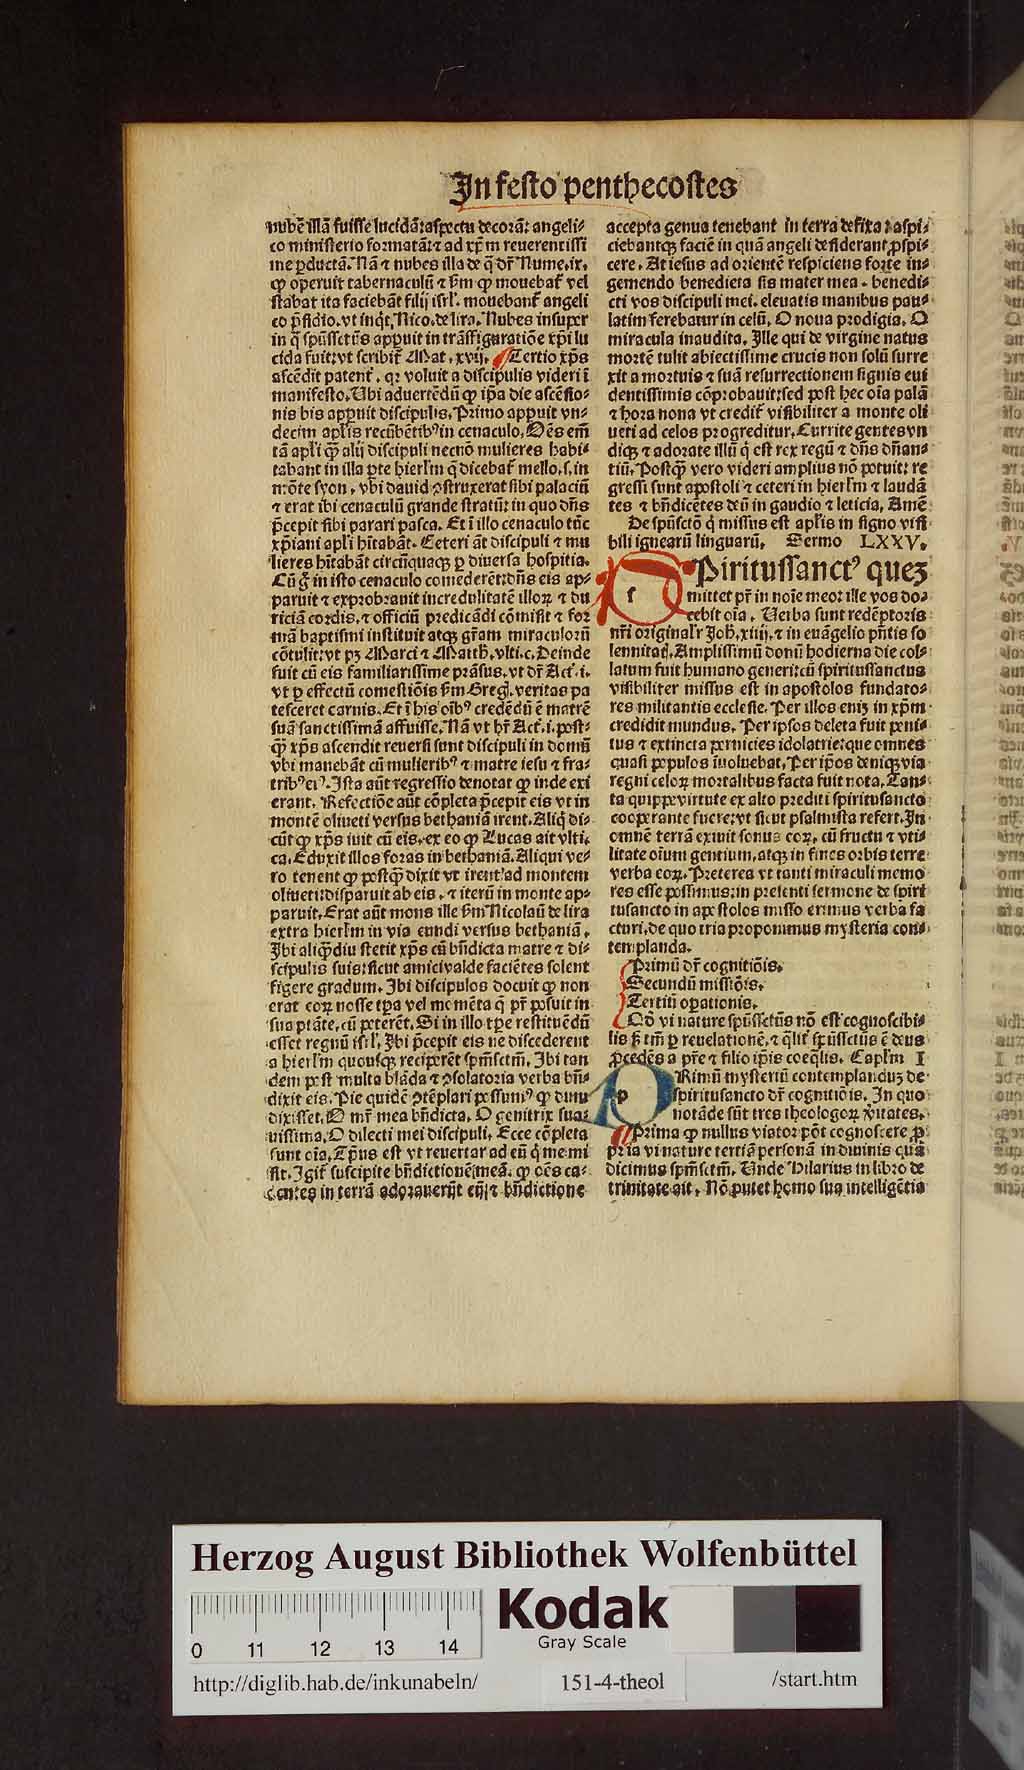 In festo penthecostes
nubē illā fuisse lucidā: aspectu decorā: angeli-
co ministerio formatā: ⁊ ad xp̄m reuerentissi
me ꝑductā. Nā ⁊ nubes illa de q̄ dr̄ Nume. ix.
ꝙ operuit tabernaculū ⁊ s̄m ꝙ mouebat̄ vel
stabat ita faciebāt filij isrl̄. mouebant̄ angeli
co p̄sidio. vt inq̇t, Nico. de lira. Nubes insuper
in q̄ spūssctūs apꝑuit in trāsfiguratiōe xp̄i lu
cida fuit: vt scribit̄ Mat. xvij. Tertio xp̄s
ascēdit patent̄. qꝛ voluit a discipulis videri ī
manifesto. Ubi aduertēdū ꝙ ip̄a die ascēsio-
nis bis apꝑuit discipulis. Primo apꝑuit vn-
decim apl̄is recūbētibꝰ in cenaculo. Oēs em̄
tā apl̄i ꝙ̄ alij discipuli necnō mulieres habi-
tabant in illa ꝑte hierl̄m q̄ dicebat̄ mello. s. in
mōte syon, vbi dauid ꝯstruxerat sibi palaciū
⁊ erat ibi cenaculū grande stratū: in quo dn̄s
p̄cepit sibi parari pasca. Et ī illo cenaculo tūc
xp̄iani apl̄i hītabāt. Ceteri āt discipuli ⁊ mu
lieres hītabāt circūquaqꝫ ꝑ diuersa hospitia.
Cū g̊ in isto cenaculo comederēt: dn̄s eis ap-
paruit ⁊ exprobrauit incredulitatē illoꝝ ⁊ du
riciā cordis, ⁊ officiū predicādi cōmisit ⁊ for
mā baptismi instituit atqꝫ gr̄am miraculorū
cōtulit: vt pꝫ Marci ⁊ Matth. vlti. c. Deinde
fuit cū eis familiarissime prāsus. vt dr̄ Act. i.
vt ꝑ effectū comestiōis s̄m Greg. veritas pa
tesceret carnis. Et ī his oībꝰ credēdū ē matrē
suā sanctissimā affuisse. Nā vt hr̄ Act. i. post-
ꝙ̄ xp̄s ascendit reuersi sunt discipuli in domū
vbi manebāt cū mulieribꝰ ⁊ matre iesu ⁊ fra-
tribꝰ eiꝰ. Ista aūt regressio denotat ꝙ inde exi
erant. Refectiōe aūt cōpleta p̄cepit eis vt in
montē oliueti versus bethaniā irent. Aliq̇ di-
cūt ꝙ xp̄s iuit cū eis. ex eo ꝙ Lucas ait vlti.
ca. Eduxit illos foras in bethaniā. Aliqui ve-
ro tenent ꝙ postꝙ̄ dixit vt irent ad montem
oliueti: disparuit ab eis. ⁊ iterū in monte ap-
paruit. Erat aūt mons ille s̄m Nicolaū de lira
extra hierl̄m in via eundi versus bethaniā.
Ibi aliꝙ̄diu stetit xp̄s cū bn̄dicta matre ⁊ di-
scipulis suis: sicut amici valde faciētes solent
figere gradum. Ibi discipulos docuit ꝙ non
erat eoꝝ nosse tp̄a vel momēta q̄ pr̄ posuit in
sua ptāte, cū peterēt. Si in illo tp̄e restituēdū
esset regnū isrl̄. Ibi p̄cepit eis ne discederent
a hierl̄m quousqꝫ reciperēt sp̄m sctm̄. Ibi tan
dem post multa blāda ⁊ ꝯsolatoria verba bn̄-
dixit eis. Pie quidē ꝯtēplari possumꝰ ꝙ dum
dixisset. O mr̄ mea bn̄dicta. O genitrix sua-
uissima, O dilecti mei discipuli. Ecce cōpleta
sunt oīa. Tp̄us est vt reuertar ad eū q̇ me mi
sit. Igit̄ suscipite bn̄dictionē meā. ꝙ oēs ca-
dentes in terrā adorauerūt eū, ⁊ bn̄dictione
accepta genua tenebant in terra defixa: aspi-
ciebantqꝫ faciē in quā angeli desiderant ꝓspi-
cere. At iesus ad orientē respiciens forte in-
gemendo benedicta sis mater mea. benedi-
cti vos discipuli mei. eleuatis manibus pau-
latim ferebatur in celū. O noua prodigia. O
miracula inaudita. Ille qui de virgine natus
mortē tulit abiectissime crucis non solū surre
xit a mortuis ⁊ suā resurrectionem signis eui
dentissimis cōprobauit: sed post hec oīa palā
⁊ hora nona vt credit̄ visibiliter a monte oli
ueti ad celos progreditur. Currite gentes vn
diqꝫ ⁊ adorate illū q̇ est rex regū ⁊ dn̄s dn̄an-
tiū. Postꝙ̄ vero videri amplius nō potuit: re
gressi sunt apostoli ⁊ ceteri in hierl̄m ⁊ laudā
tes ⁊ bn̄dicētes deū in gaudio ⁊ leticia. Amē
De spūsctō q̇ missus est apl̄is in signo visi
bili igneārū linguarū. Sermo LXXV.
s
Piritussanctꝰ quem
mittet pr̄ in noīe meo: ille vos do-
cebit oīa. Verba sunt redēptoris
nr̄i original̄r Joh. xiiij. ⁊ in euāgelio pn̄tis so
lennitat. Amplissimū donū hodierna die col-
latum fuit humano generi: cū spiritussanctus
visibiliter missus est in apostolos fundato-
res militantis ecclesie. Per illos enim in xp̄m
credidit mundus. Per ipsos deleta fuit peni-
tus ⁊ extincta pernicies idolatrie: que omnes
quasi populos īuoluebat. Per ip̄os deniqꝫ via
regni celoꝝ mortalibus facta fuit nota. Tan-
ta quippe virtute ex alto prediti spiritusancto
cooperante fuere: vt sicut psalmista refert. In
omnē terrā exiuit sonus eoꝝ, cū fructu ⁊ vti-
litate oīum gentium, atqꝫ in fines orbis terre
verba eoꝝ. Preterea vt tanti miraculi memo
res esse possimus: in presenti sermone de spiri
tusancto in apostolos misso erimus verba fa
cturi. de quo tria proponimus mysteria con-
templanda.
Primū dr̄ cognitiōis.
Secundū missiōis.
Tertiū oꝑationis.
Qd̄ vi nature spūssctūs nō est cognoscibi-
lis s̄ tm̄ ꝑ reuelationē, ⁊ q̄lit̄ spūssctūs ē deus
ꝓcedēs a pr̄e ⁊ filio ip̄is coeq̄lis. Capl̄m I
p
Rimū mysteriū contemplandum de
spiritusancto dr̄ cognitiōis. In quo
notāde sūt tres theologoꝝ v̄itates.
Prima ꝙ nullus viator pōt cognoscere ꝓ
pria vi nature tertiā personā in diuinis quā
dicimus sp̄m sctm̄. Unde Hilarius in libro de
trinitate ait. Nō putet homo sua intelligētia
Herzog August Bibliothek Wolfenbüttel
Kodak
Gray Scale
0 11 12 13 14
http://diglib.hab.de/inkunabeln/ 151-4-theol /start.htm